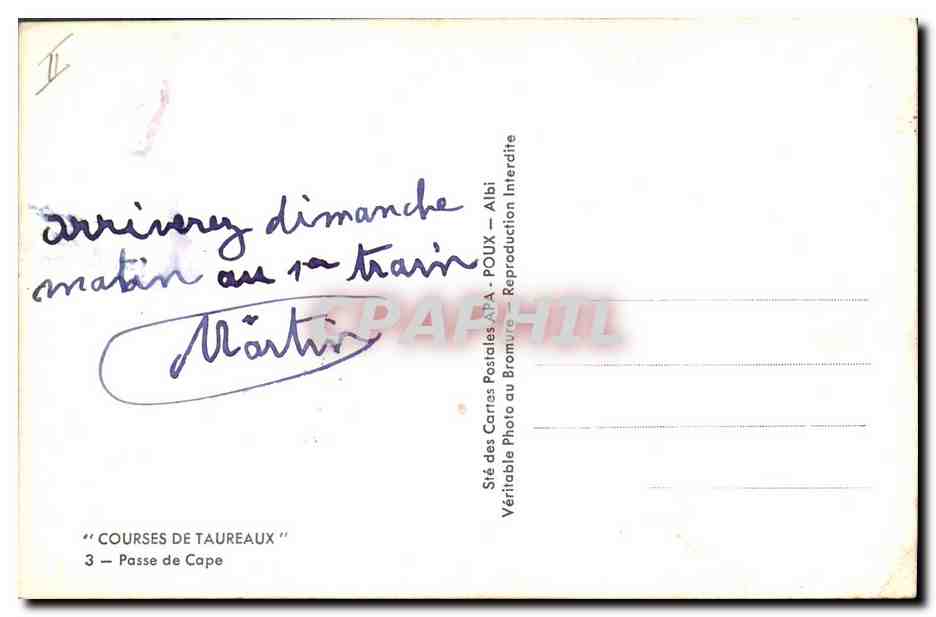 II
arriverez dimanche
matin au 1er train
Martin
CPAPHIL
" COURSES DE TAUREAUX "
3 — Passe de Cape
Sté des Cartes Postales APA - POUX — Albi
Véritable Photo au Bromure — Reproduction Interdite